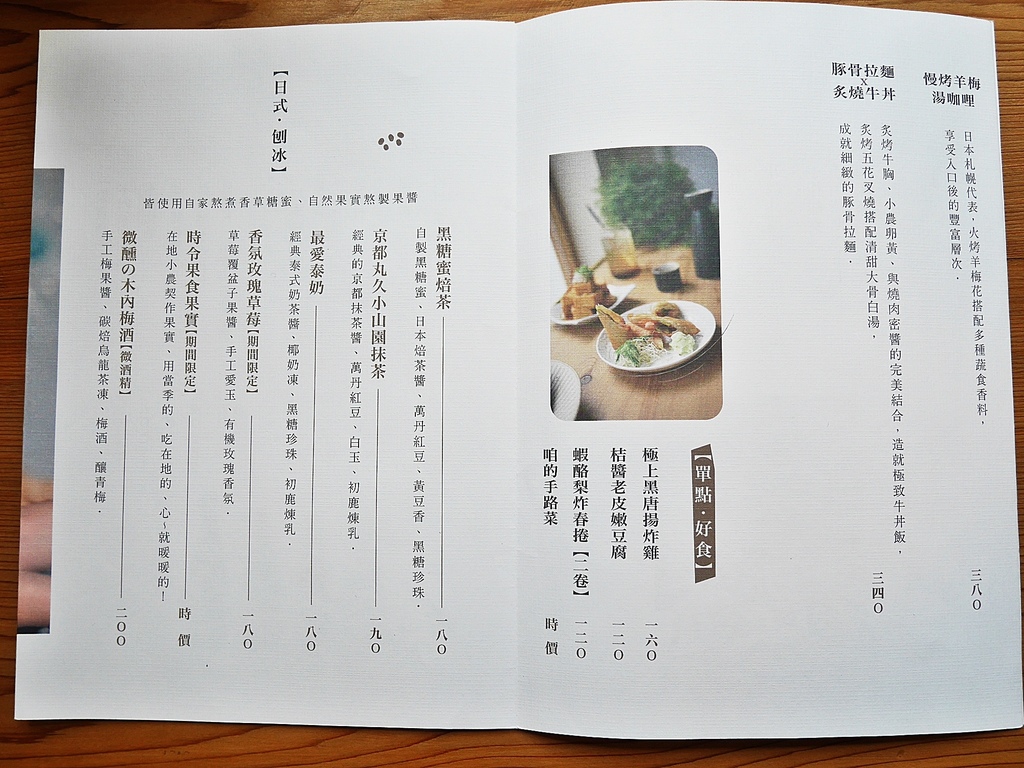 慢烤羊梅
湯咖哩
日本札幌代表，火烤羊梅花搭配多種蔬食香料，
享受入口後的豐富層次．
三八〇
豚骨拉麵
x
炙燒牛丼
炙烤牛胸、小農卵黃、與燒肉密醬的完美結合，造就極致牛丼飯，
炙烤五花叉燒搭配清甜大骨白湯，
成就細緻的豚骨拉麵．
三四〇
【單點．好食】
極上黑唐揚炸雞 一六〇
桔醬老皮嫩豆腐 一二〇
蝦酪梨炸春捲【二卷】 一二〇
咱的手路菜 時價
【日式．刨冰】
皆使用自家熬煮香草糖蜜、自然果實熬製果醬
黑糖蜜焙茶 一八〇
自製黑糖蜜、日本焙茶醬、萬丹紅豆、黃豆香、黑糖珍珠．
京都丸久小山園抹茶 一九〇
經典的京都抹茶醬、萬丹紅豆、白玉、初鹿煉乳．
最愛泰奶 一八〇
經典泰式奶茶醬、椰奶凍、黑糖珍珠、初鹿煉乳．
香氛玫瑰草莓【期間限定】 一八〇
草莓覆盆子果醬、手工愛玉、有機玫瑰香氛．
時令果食果實【期間限定】 時價
在地小農契作果實、用當季的、吃在地的、心~就暖暖的！
微醺の木內梅酒【微酒精】 二〇〇
手工梅果醬、碳焙烏龍茶凍、梅酒、釀青梅．